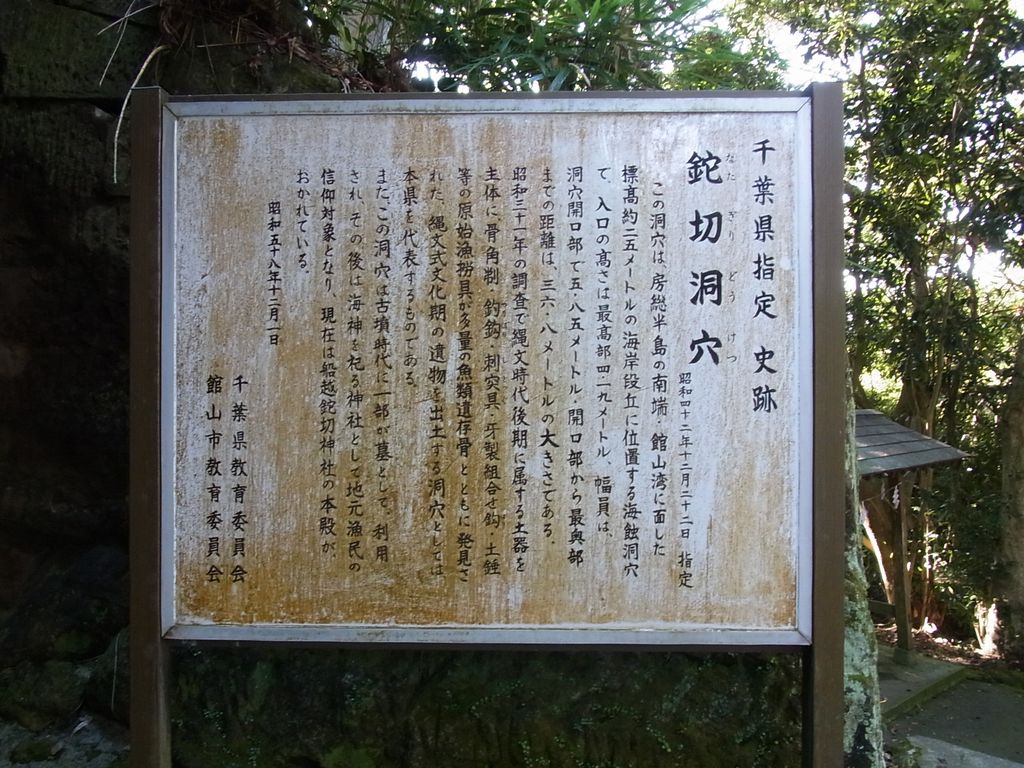 千葉県指定 史跡
鉈切洞穴
なたぎりどうけつ
昭和四十二年十二月二十二日 指定
この洞穴は、房総半島の南端・館山湾に面した
標高約二五メートルの海岸段丘に位置する海蝕洞穴
で、入口の高さは最高部四・一九メートル、幅員は、
洞穴開口部で五・八五メートル・開口部から最奥部
までの距離は、三六・八メートルの大きさである。
昭和三十一年の調査で縄文時代後期に属する土器を
主体に骨角剤・釣鈎・刺突具・牙製組合せ鈎・土錘
等の原始漁撈具が多量の魚類遺存骨とともに発見さ
れた。縄文式文化期の遺物を出土する洞穴としては
本県を代表するものである。
また、この洞穴は古墳時代に一部が墓として、利用
され、その後は海神を祀る神社として地元漁民の
信仰対象となり、現在は船越鉈切神社の本殿が、
おかれている。
昭和五十八年十二月一日
千葉県教育委員会
館山市教育委員会